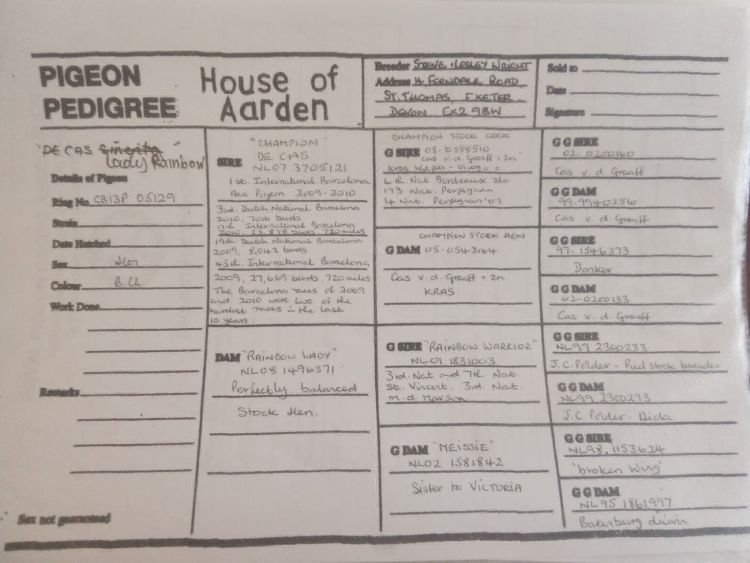 PIGEON
PEDIGREE
House of
Aarden
Breeder STEVE + LESLEY WRIGHT
Address 14 FERNDALE ROAD
ST. THOMAS, EXETER
DEVON EX2 9BW
Sold to
Date
Signature
'DE CAS
Lady Rainbow'
Details of Pigeon
Ring No. GB13P 05129
Strain
Date Hatched
Sex Hen
Colour B. Ch
Work Done
Remarks
Sex not guaranteed
"CHAMPION"
SIRE DE CAS
NL07 3705121
1st. International Barcelona
Ace Pigeon 2009-2010
3rd. Dutch National Barcelona
2010, 7016 birds
International Barcelona
2010, 25,878 birds, 720 miles
19th. Dutch National Barcelona
2009, 8,042 birds
45th. International Barcelona
2009, 27,669 birds, 720 miles
The Barcelona races of 2009
and 2010 were two of the
hardest races in the last
10 years.
DAM "RAINBOW LADY"
NL08 1496371
Perfectly balanced
Stock Hen.
CHAMPION STOCK COCK
G SIRE 03-0358510
Cas v.d. Graaff + Zn
6th Nat Bordeaux
173 Nat. Perpignan
4 Nat. Perpignan '07
CHAMPION STOCK HEN
G DAM 05-0543144
Cas v.d. Graaff + Zn
KRAS
G SIRE "RAINBOW WARRIOR"
NL-01 1831003
3rd. Nat and 7th Nat
St. Vincent. 3rd. Nat.
m.d. Marsan
G DAM "MEISSIE"
NL02 1581842
Sister to VICTORIA
G G SIRE
02-0200160
Cas v. d. Graaff
G G DAM
99-9940256
Cas v. d. Graaff
G G SIRE
97-1546373
Donker
G G DAM
02-0200133
Cas v. d. Graaff
G G SIRE
NL99 2300233
J.C. Polder - Pied stock breeder
G G DAM
NL99 2300273
J.C Polder - Dida
G G SIRE
NL98, 1153624
'broken Wing'
G G DAM
NL95 1861997
Batenburg